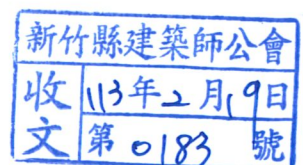 新竹縣建築師公會
收文
113年2月19日
第0183號